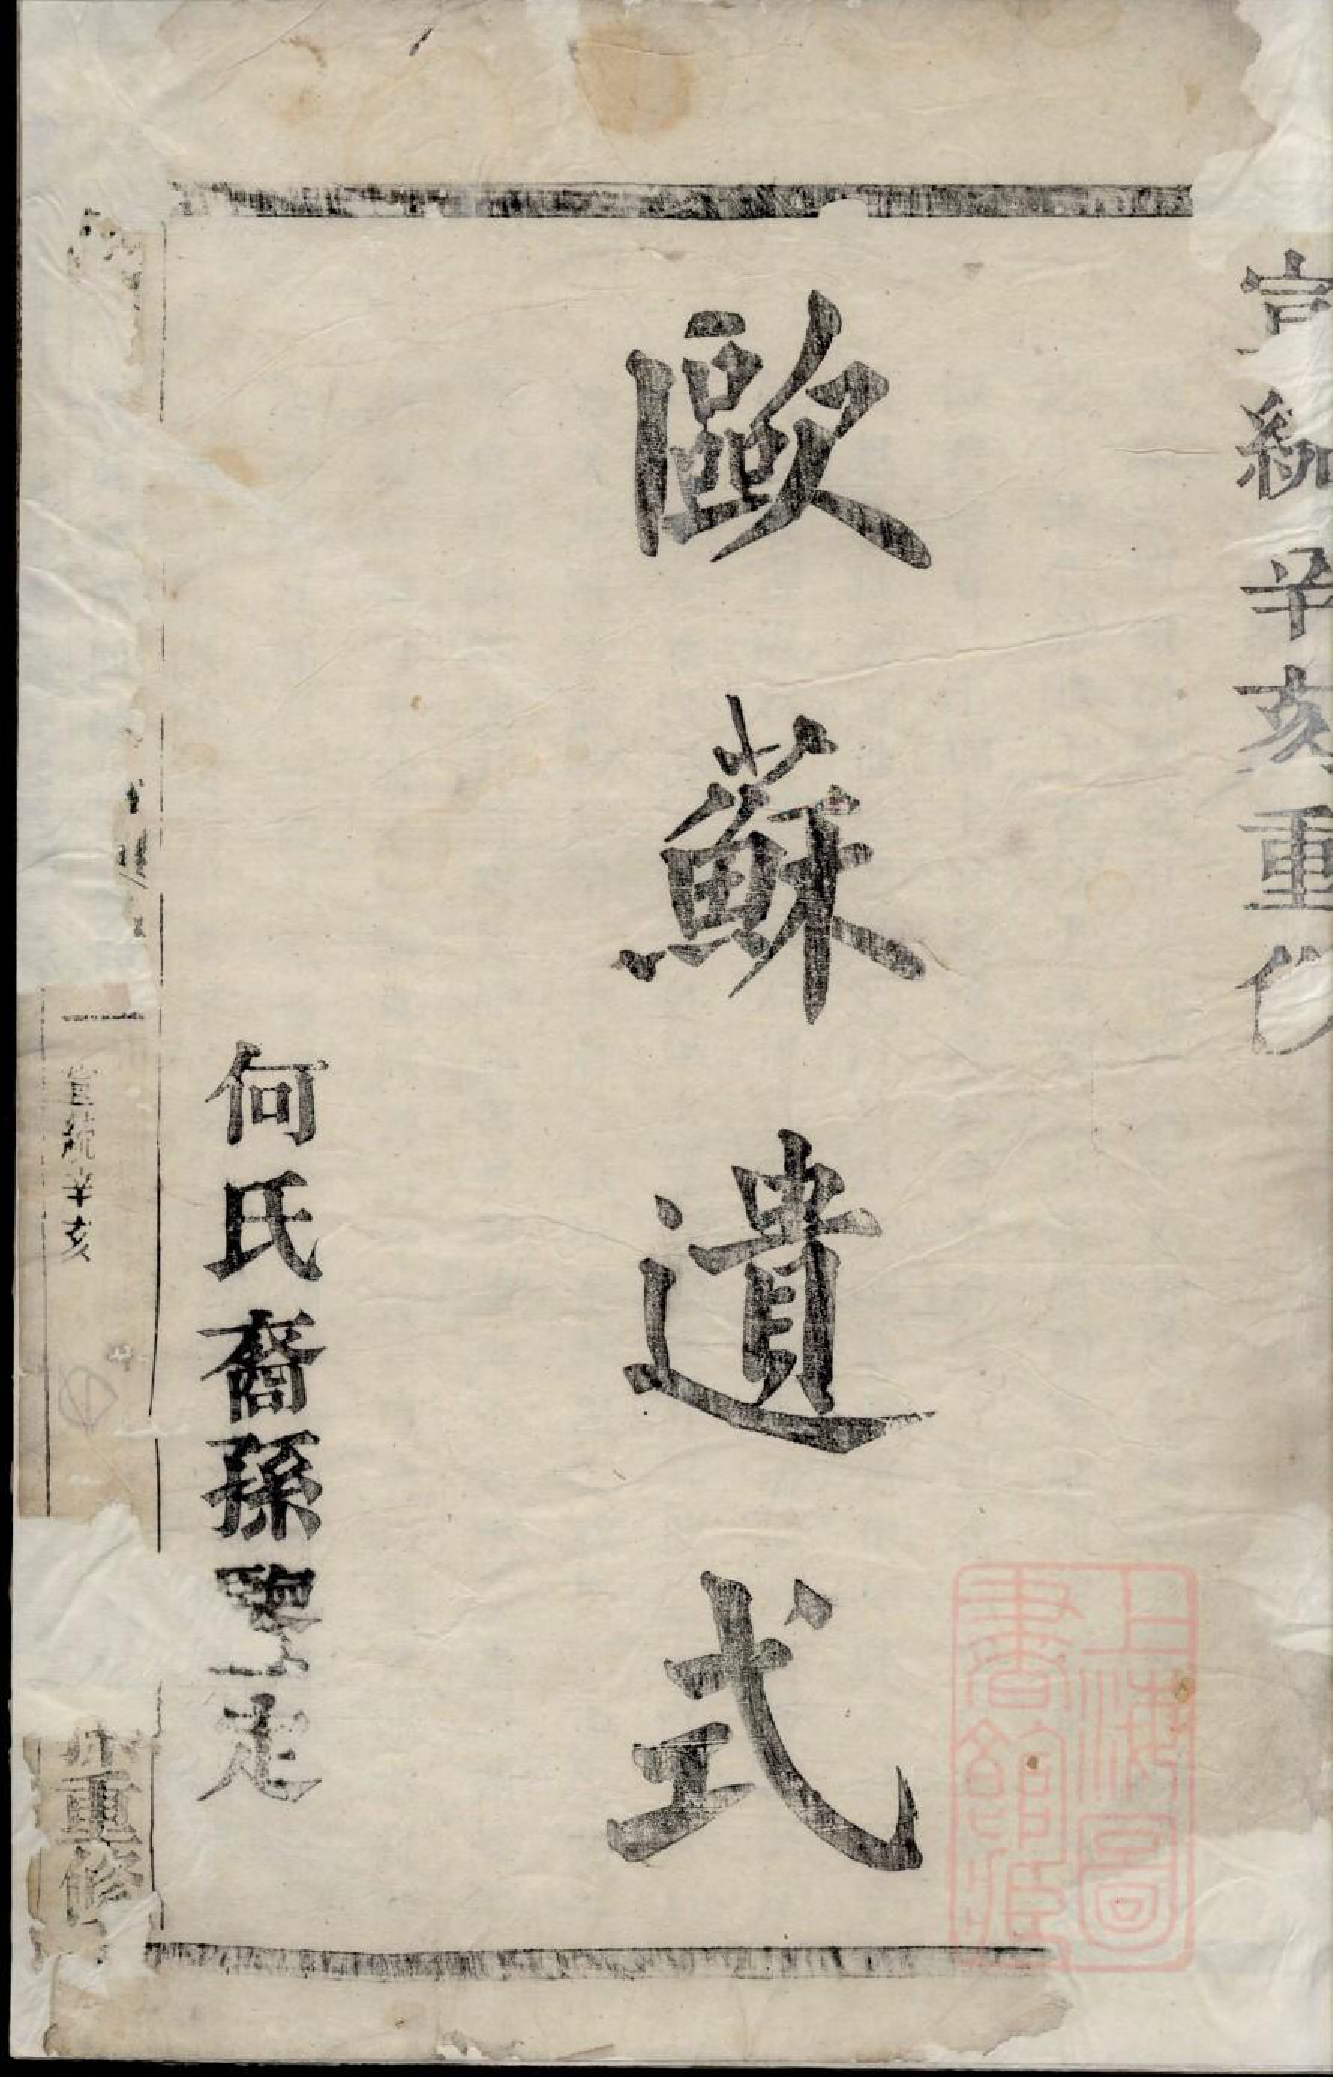 宣統辛亥重修
歐蘇遺式
何氏裔孫
宣統辛亥
重修
上海圖
書館藏